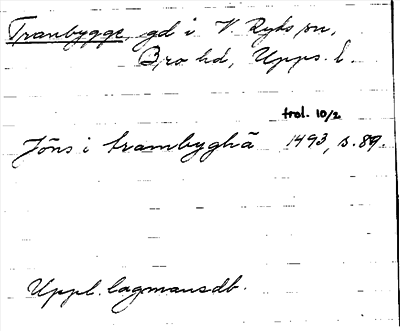 Tranbygge, gd i V. Ryds sn,
Bro hd, Upps. l.
trol. 10/2
Jöns i trambyghā 1493, s. 89.
Uppl. lagmansdb.